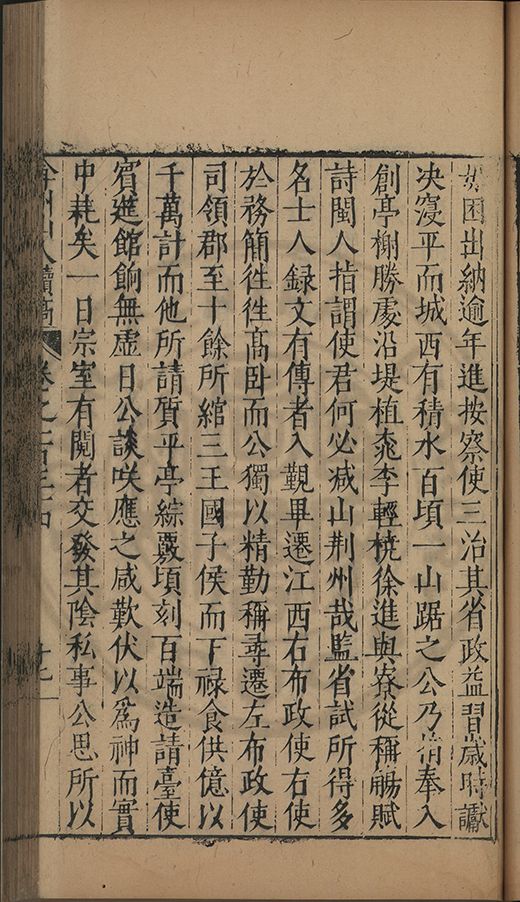 困出納逾年進按察使三治其省政益習歲時讞
决寖平而城西有積水百頃一山踞之公乃捐奉入
創亭榭勝處沿堤植桃李輕橈徐進與寮從稱觴賦
詩閩人指謂使君何必减山荆州哉監省試所得多
名士人録文有傳者入覲畢遷江西右布政使右使
於務簡徃徃髙卧而公獨以精勤稱尋遷左布政使
司領郡至十餘所綰三王國子侯而下禄食供億以
千萬計而他所請質平亭綜覈頃刻百端造請臺使
賓進館餉無虚日公談咲應之咸歎伏以爲神而實
中耗矣一日宗室有䦧者交發其陰私事公思所以
弇州山人續稿 卷之一百三十四 十七